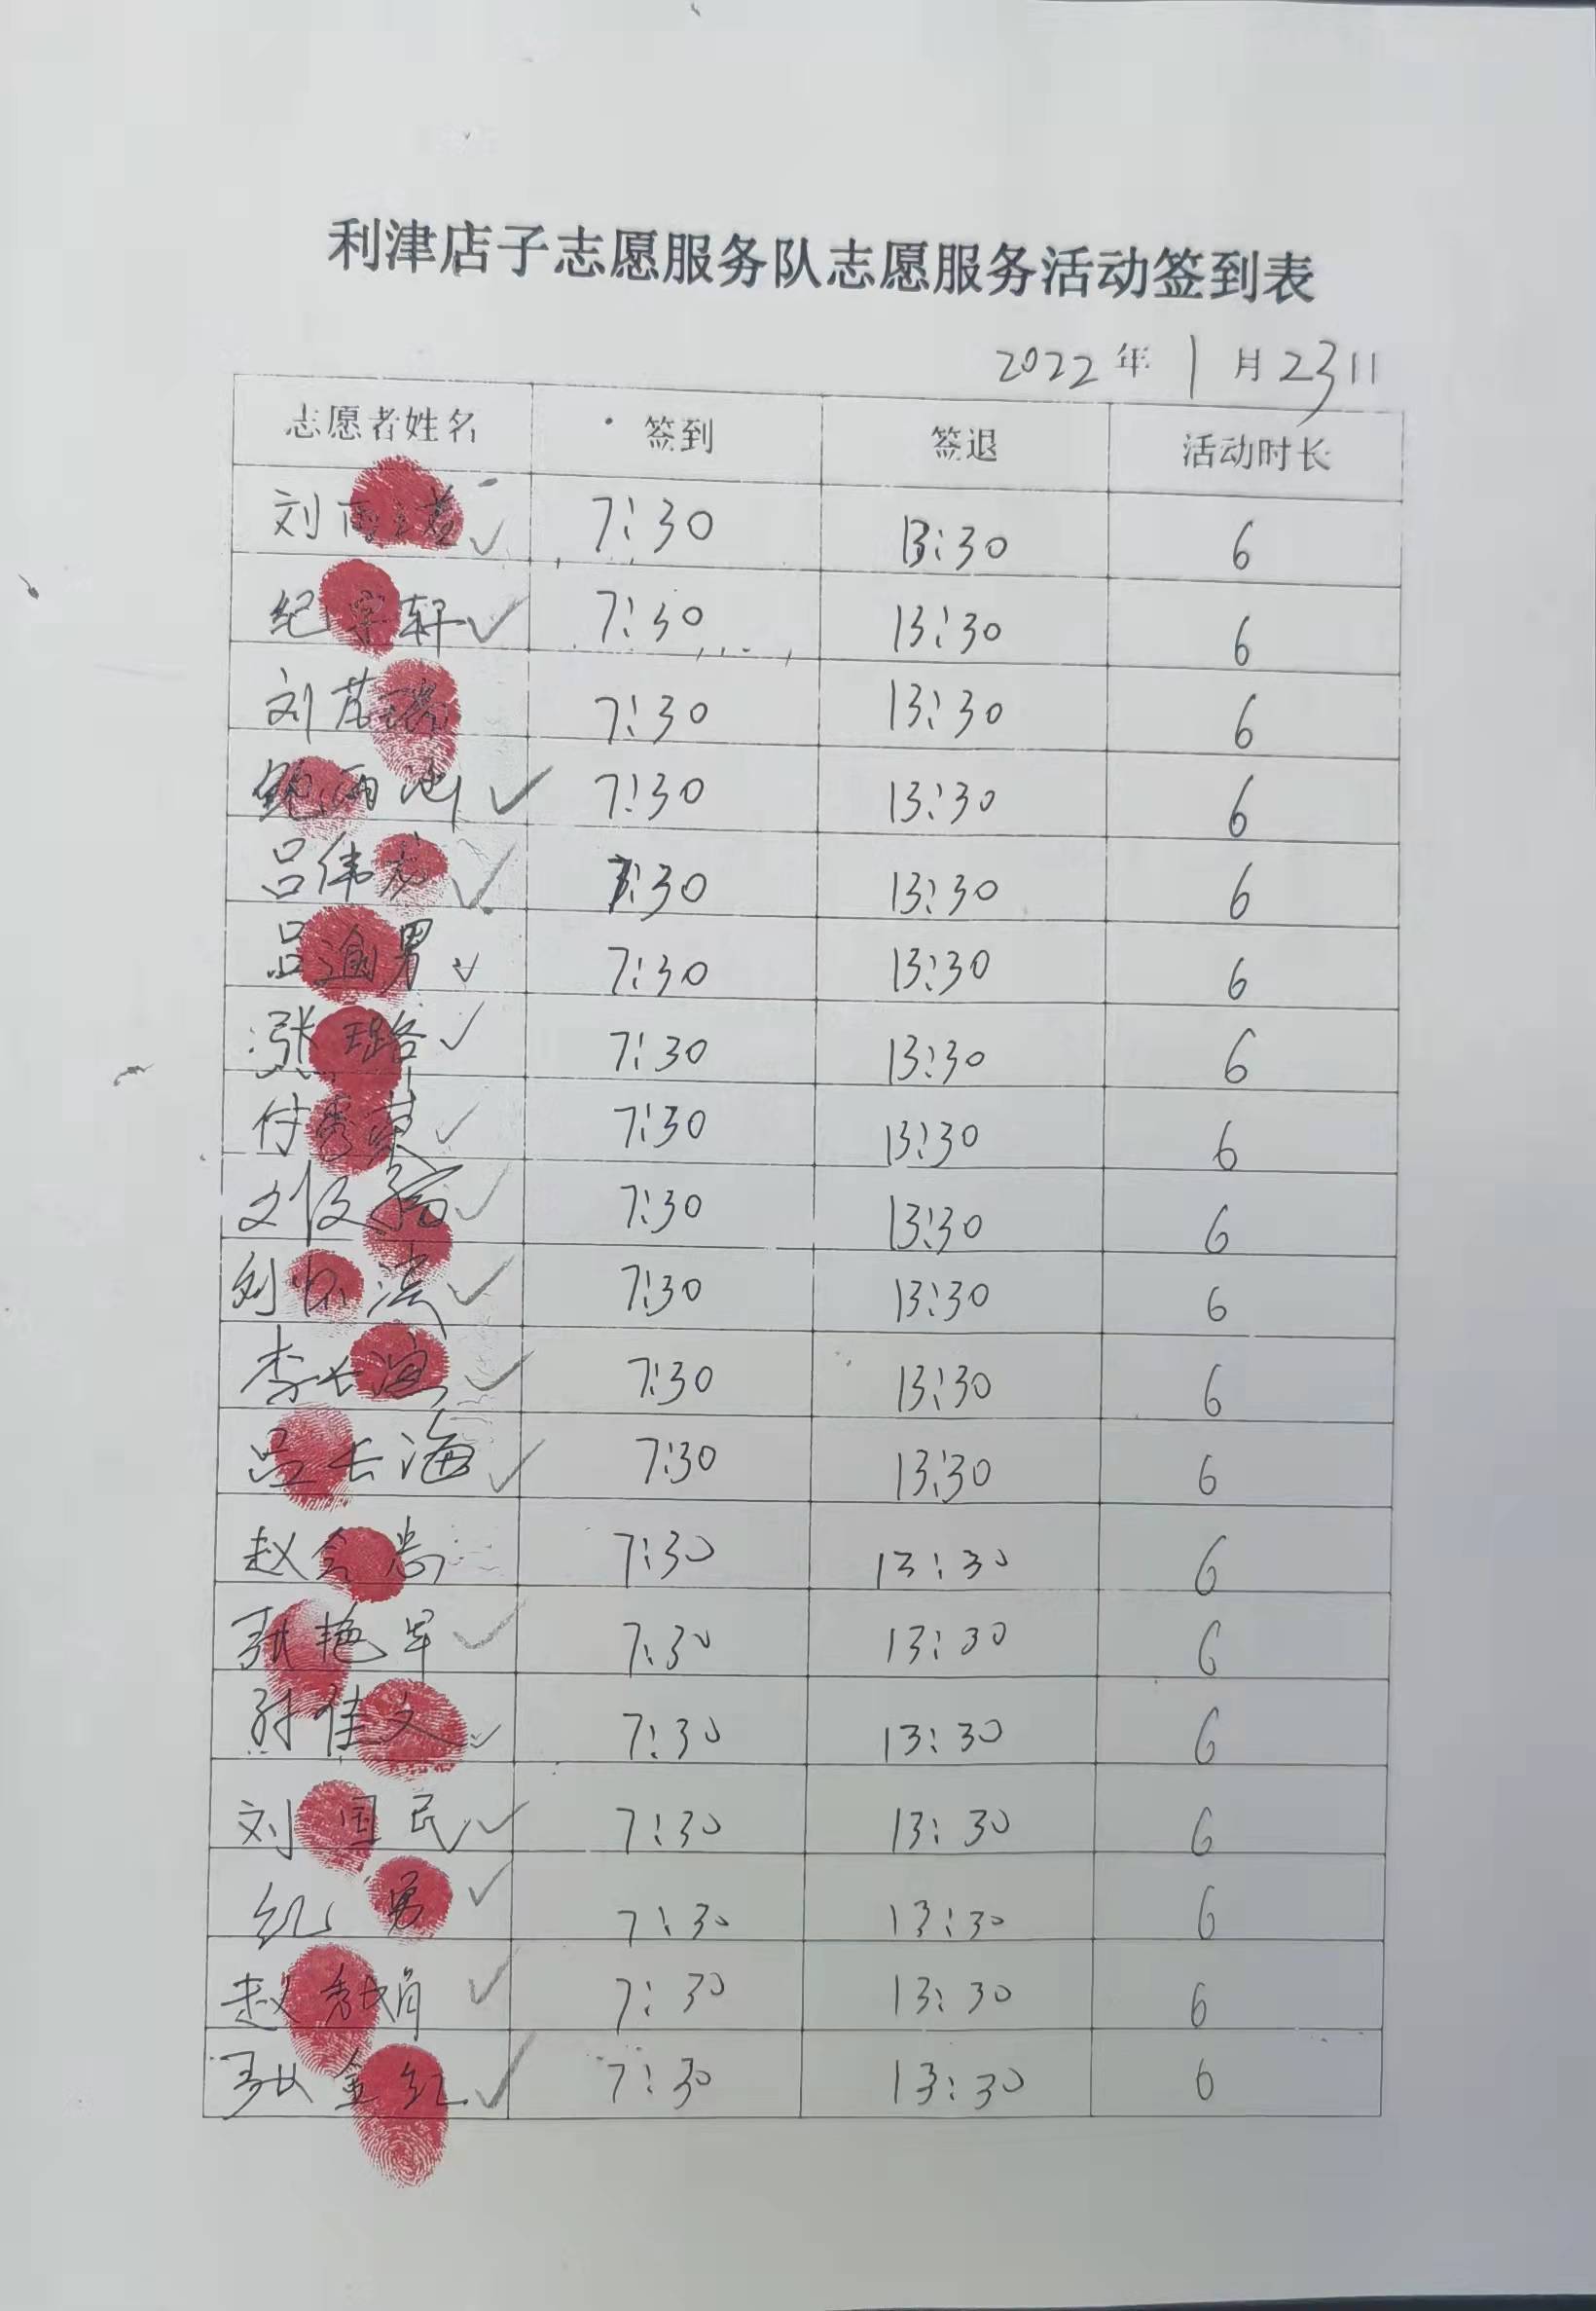 利津店子志愿服务队志愿服务活动签到表
2022年1月23日
志愿者姓名 签到 签退 活动时长
刘雨 7:30 13:30 6
纪宇轩 7:30 13:30 6
刘 7:30 13:30 6
鲍雨 7:30 13:30 6
吕伟 7:30 13:30 6
吕渝男 7:30 13:30 6
张璐 7:30 13:30 6
付秀英 7:30 13:30 6
7:30 13:30 6
刘 滨 7:30 13:30 6
李长 7:30 13:30 6
吕长海 7:30 13:30 6
赵 7:30 13:30 6
张艳军 7:30 13:30 6
孙佳文 7:30 13:30 6
刘国民 7:30 13:30 6
纪勇 7:30 13:30 6
赵秀娟 7:30 13:30 6
张金红 7:30 13:30 6